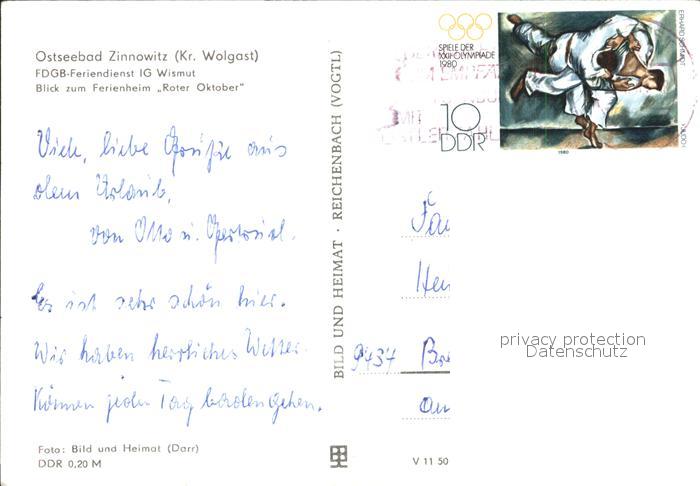 Ostseebad Zinnowitz (Kr. Wolgast)
FDGB-Feriendienst IG Wismut
Blick zum Ferienheim „Roter Oktober"
Viele, liebe Grüße aus
dem Urlaub,
von Otto u. Gertrud.
Es ist sehr schön hier.
Wir haben herrliches Wetter.
Können jeden Tag baden gehen.
Foto: Bild und Heimat (Darr)
DDR 0,20 M
BILD UND HEIMAT · REICHENBACH (VOGTL)
V 11 50
SPIELE DER
XXII. OLYMPIADE
1980
10
DDR
ERHARD SCHMIDT
1980
Fam
Hen
9437
privacy protection
Datenschutz